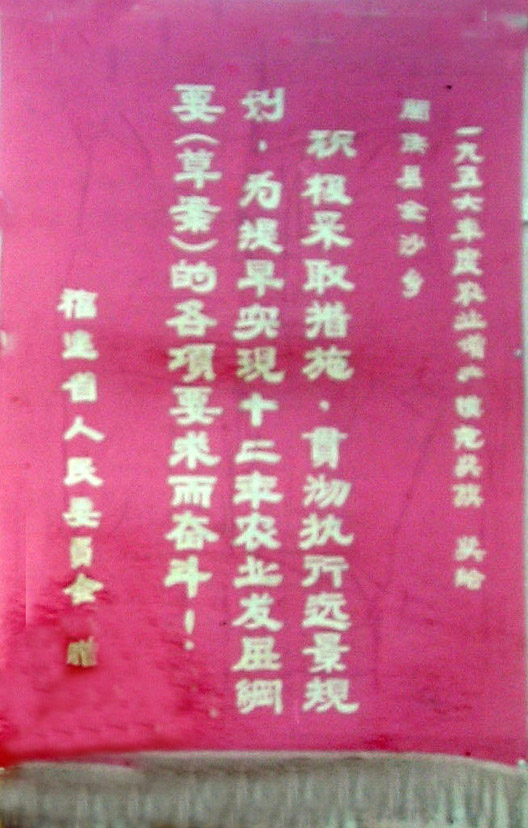 一九五六年度农业增产模范奖旗 奖给
闽侯县金沙乡
积极采取措施，贯彻执行远景規
划，为提早实現十二年农业发展綱
要（草案）的各項要求而奋斗！
福建省人民委員会 赠